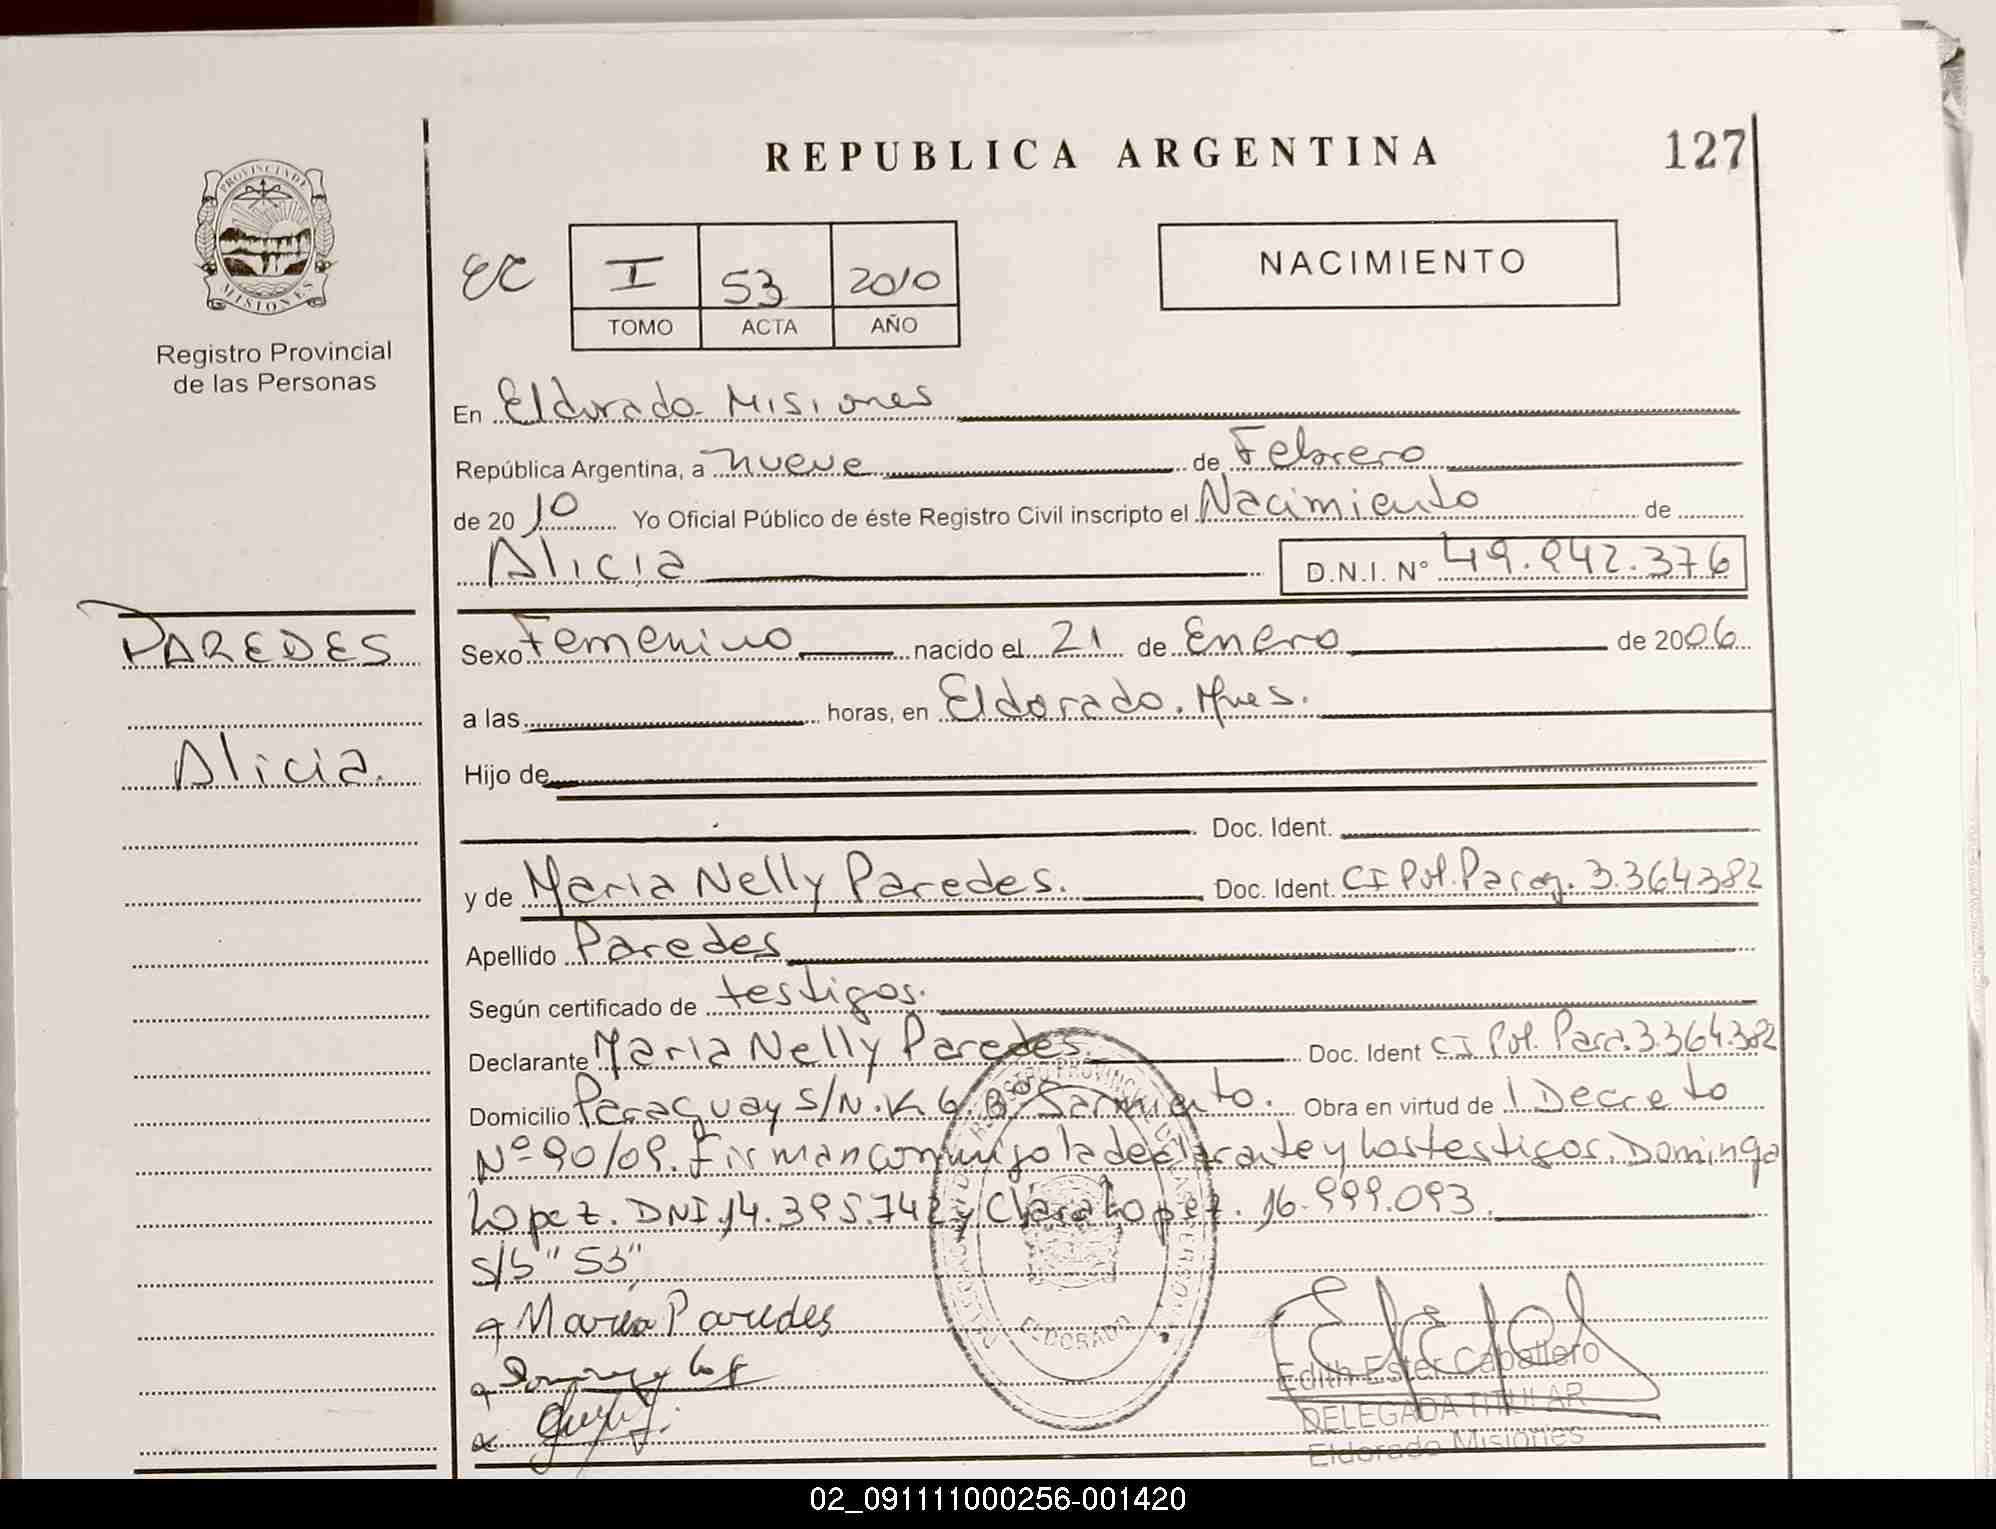 REPUBLICA ARGENTINA
127
PROVINCIA DE
MISIONES
Registro Provincial
de las Personas
I 53 2010
TOMO ACTA AÑO
NACIMIENTO
En Eldorado Misiones
República Argentina, a nueve de Febrero
de 2010 Yo Oficial Público de éste Registro Civil inscripto el Nacimiento de
Alicia D.N.I. Nº 49.942.376
PAREDES
Alicia.
Sexo Femenino nacido el 21 de Enero de 2006
a las horas, en Eldorado. Mnes.
Hijo de
Doc. Ident.
y de Maria Nelly Paredes. Doc. Ident. CI Pol. Parag. 3.364382
Apellido Paredes
Según certificado de testigos.
Declarante Maria Nelly Paredes. Doc. Ident CI Pol. Para. 3.364.382
Domicilio Paraguay S/N. K 6. Bº Sarmiento. Obra en virtud de 1 Decreto
Nº 90/09. Firman conmigo la declarante y los testigos. Dominga
Lopez. DNI. 14.395.742 y Clara Lopez. 16.999.093.
S/b "53"
Maria Paredes
ELDORADO
Edith Ester Caballero
DELEGADA TITULAR
Eldorado Misiones
02_091111000256-001420